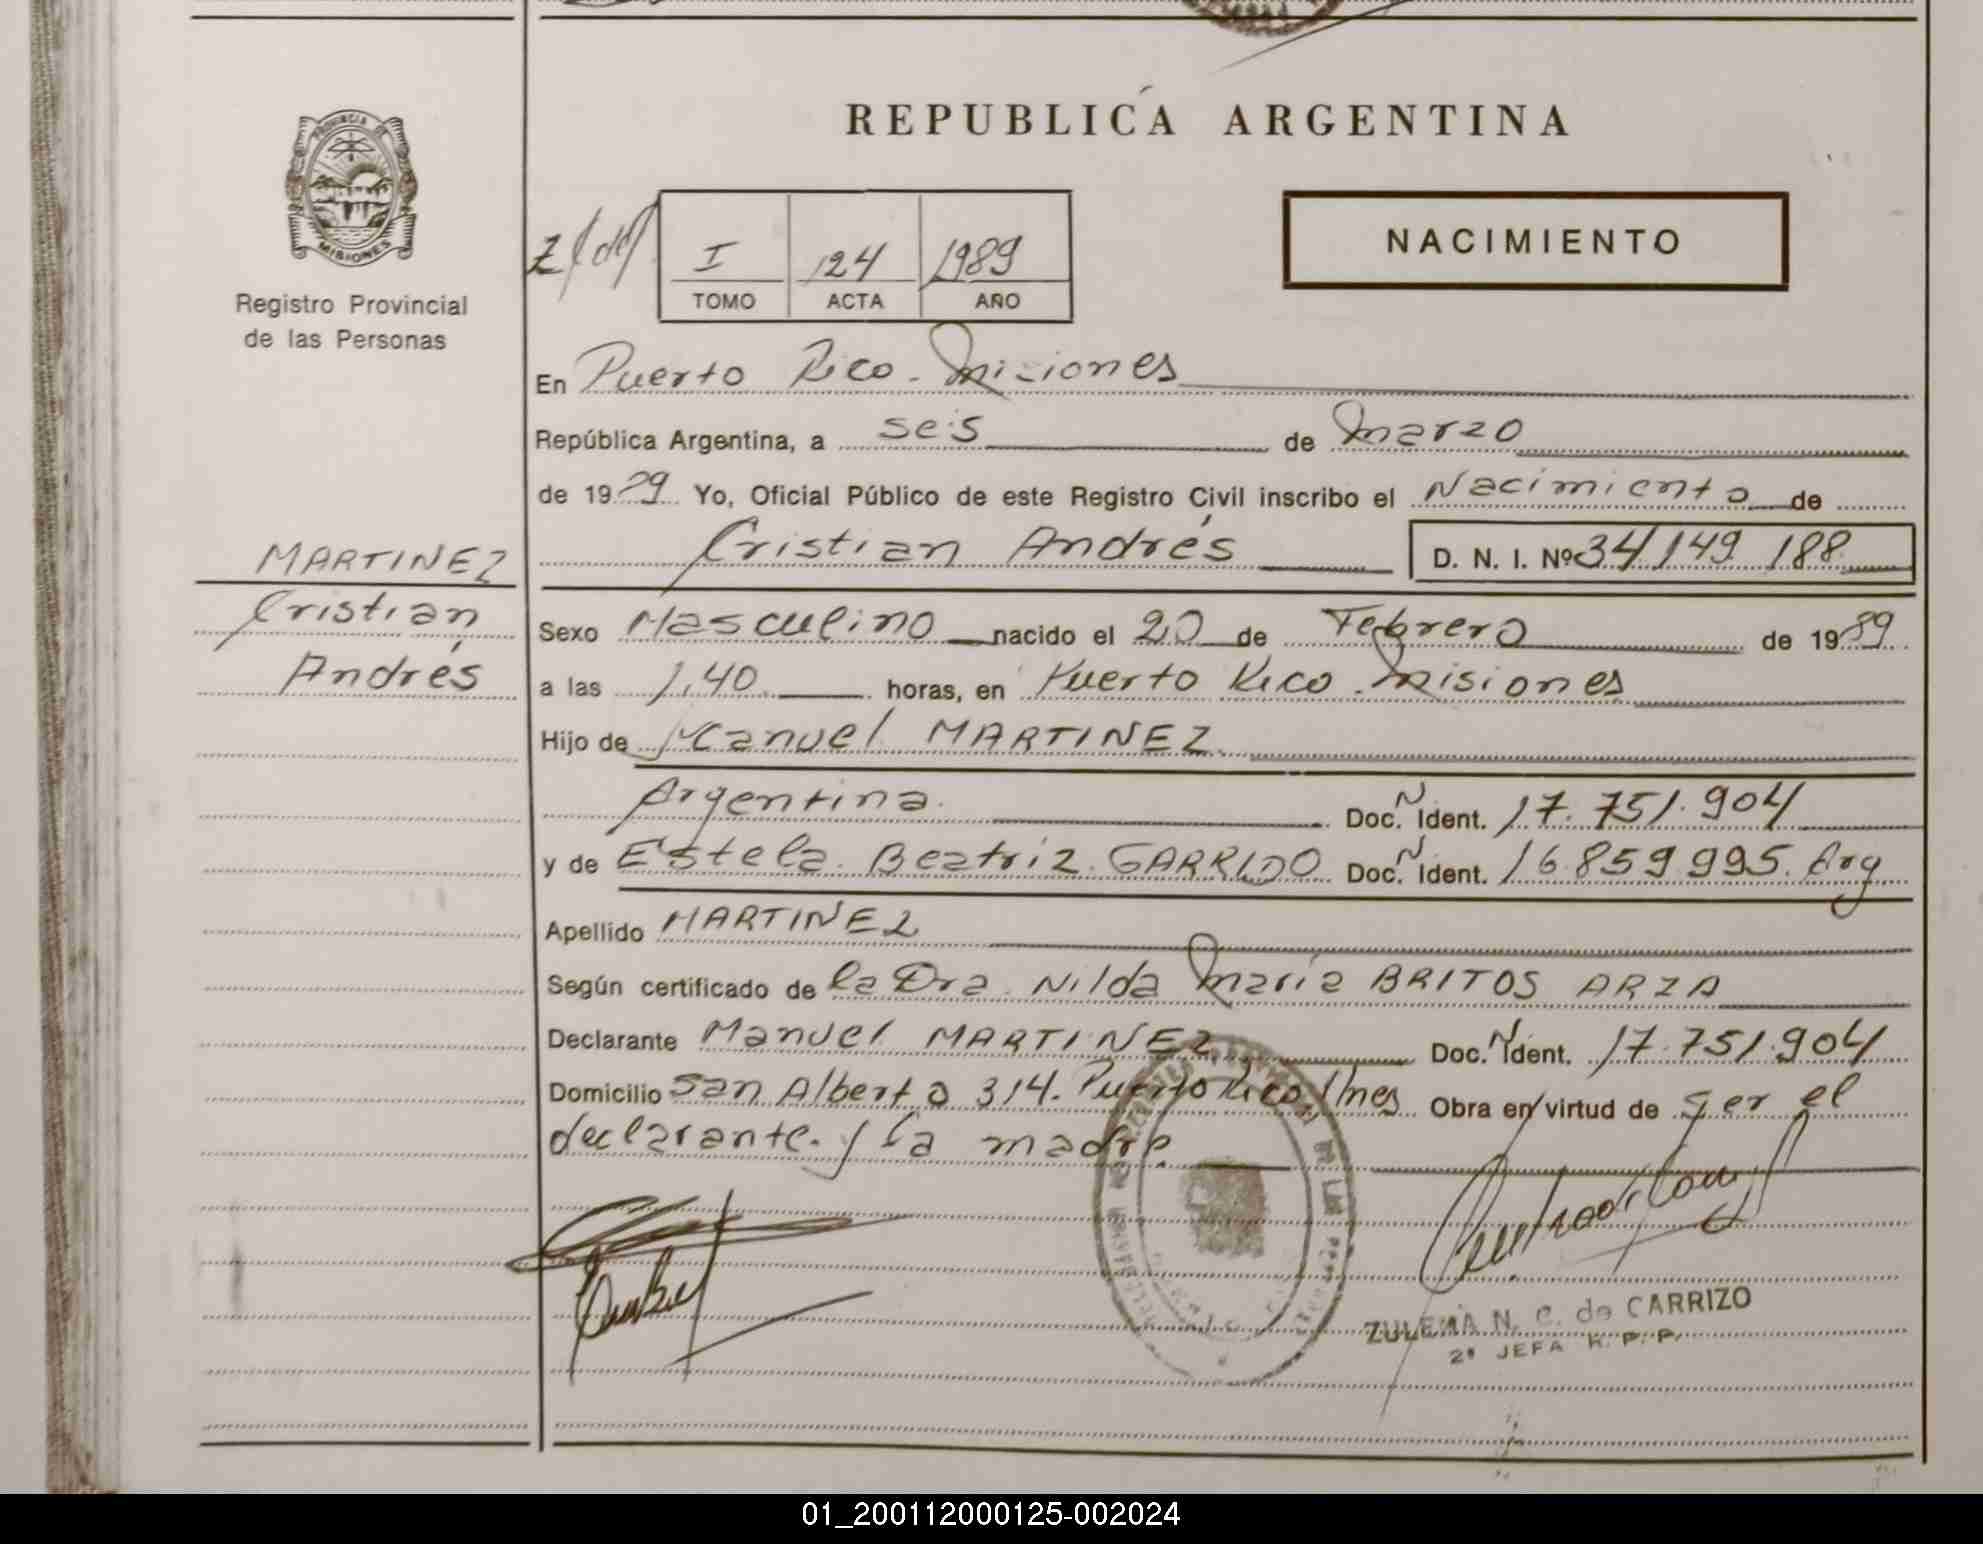 REPUBLICA ARGENTINA
PROVINCIA DE
MISIONES
Registro Provincial
de las Personas
I 124 1989
TOMO ACTA AÑO
NACIMIENTO
En Puerto Rico - Misiones
República Argentina, a seis de Marzo
de 1989 Yo, Oficial Público de este Registro Civil inscribo el Nacimiento de
Cristian Andrés D. N. I. Nº 34.149.188
MARTINEZ
Cristian
Andrés
Sexo Masculino nacido el 20 de Febrero de 1989
a las 1,40 horas, en Puerto Rico. Misiones
Hijo de Manuel MARTINEZ
Argentina. Doc. N Ident. 17.751.904
y de Estela Beatriz GARRIDO Doc. N Ident. 16.859.995. Arg
Apellido MARTINEZ
Según certificado de la Dra. Nilda María BRITOS ARZA
Declarante Manuel MARTINEZ Doc. N Ident. 17.751.904
Domicilio San Alberto 314. Puerto Rico, Mnes Obra en virtud de ser el
declarante y la madre
ZULEMA N. C. de CARRIZO
2ª JEFA R. P. P.
01_200112000125-002024